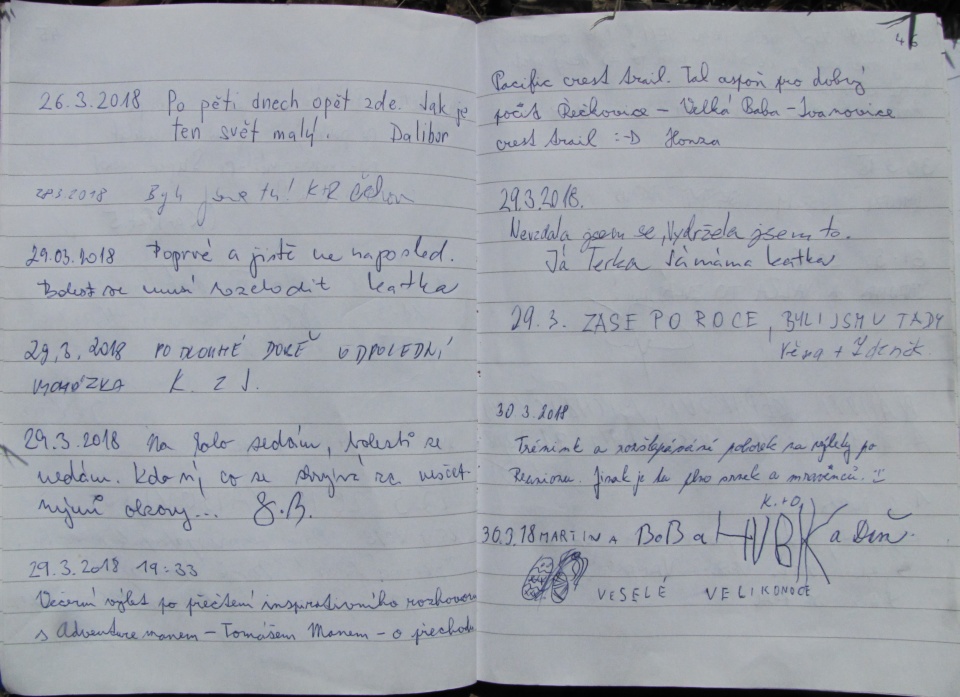 26.3.2018 Po pěti dnech opět zde. Jak je
ten svět malý. Dalibor
28.3.2018 Byli jsme tu! K+R
29.03.2018 Poprvé a jistě ne naposled.
Bolest se musí rozchodit Katka
29.3.2018 PO DLOUHÉ DOBĚ ODPOLEDNÍ
K. z J.
29.3.2018 Na kolo sedám, bolesti se
nedám. Kdo ví, co se skrývá za
obzory... J.B.
29.3.2018 19:33
Večerní výlet po přečtení inspirativního rozhovoru
s Adventure manem - Tomášem Manem - o přechodu
46
Pacific crest trail. Tak aspoň pro dobrý
pocit Řečkovice - Velká Baba - Ivanovice
crest trail :-D Honza
29.3.2018.
Nevzdala jsem se, Vydržela jsem to.
Já Terka Já máma Katka
29.3. ZASE PO ROCE, BYLI JSMV TADY
Věra + Zdeněk.
30.3.2018
Trénink a na výlety po
Reunionu. Jinak je tu plno a mravenců.
K.+O.
30.3.18 MARTIN A BoBa a
VESELÉ VELIKONOCE